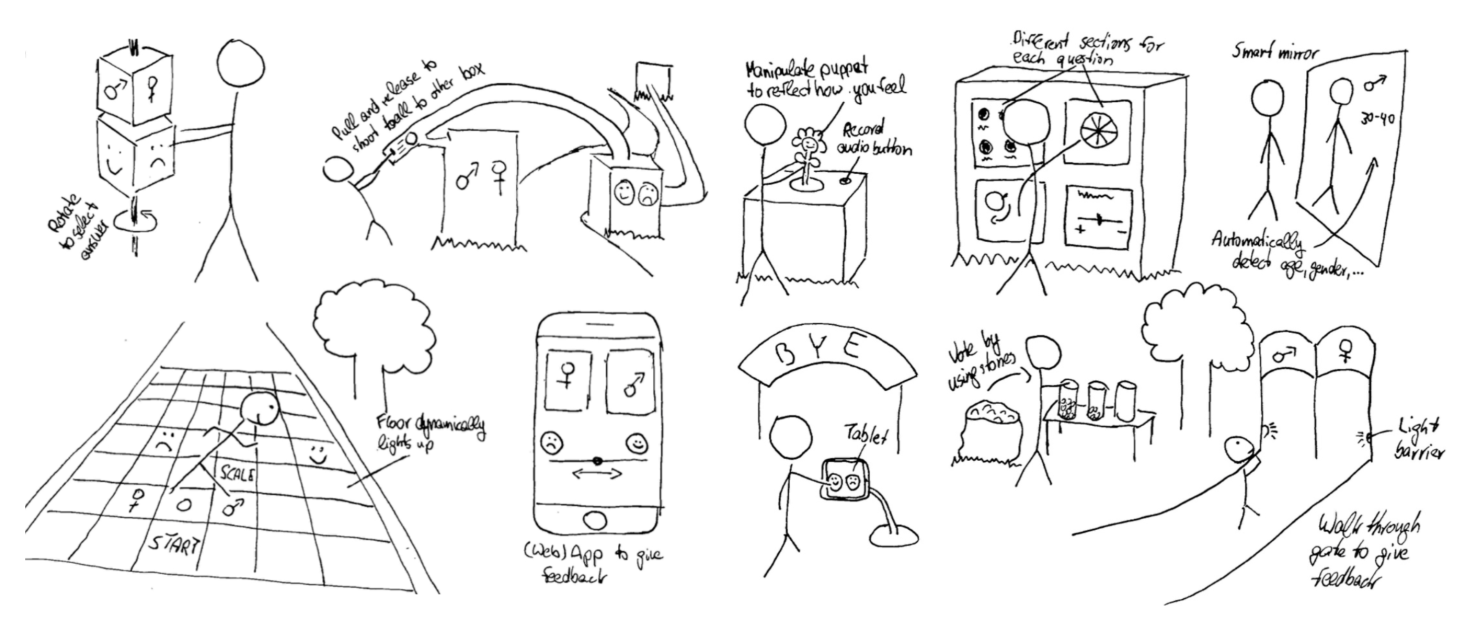 Rotate
to select
answer
Pull and release to
shoot ball to other box
Manipulate puppet
to reflect how you feel
Record
audio button
Different sections for
each question
Smart mirror
30-40
Automatically
detect age, gender,...
START
SCALE
Floor dynamically
lights up
(Web) App to give
feedback
BYE
Tablet
Vote by
using stones
Light
barrier
Walk through
gate to give
feedback